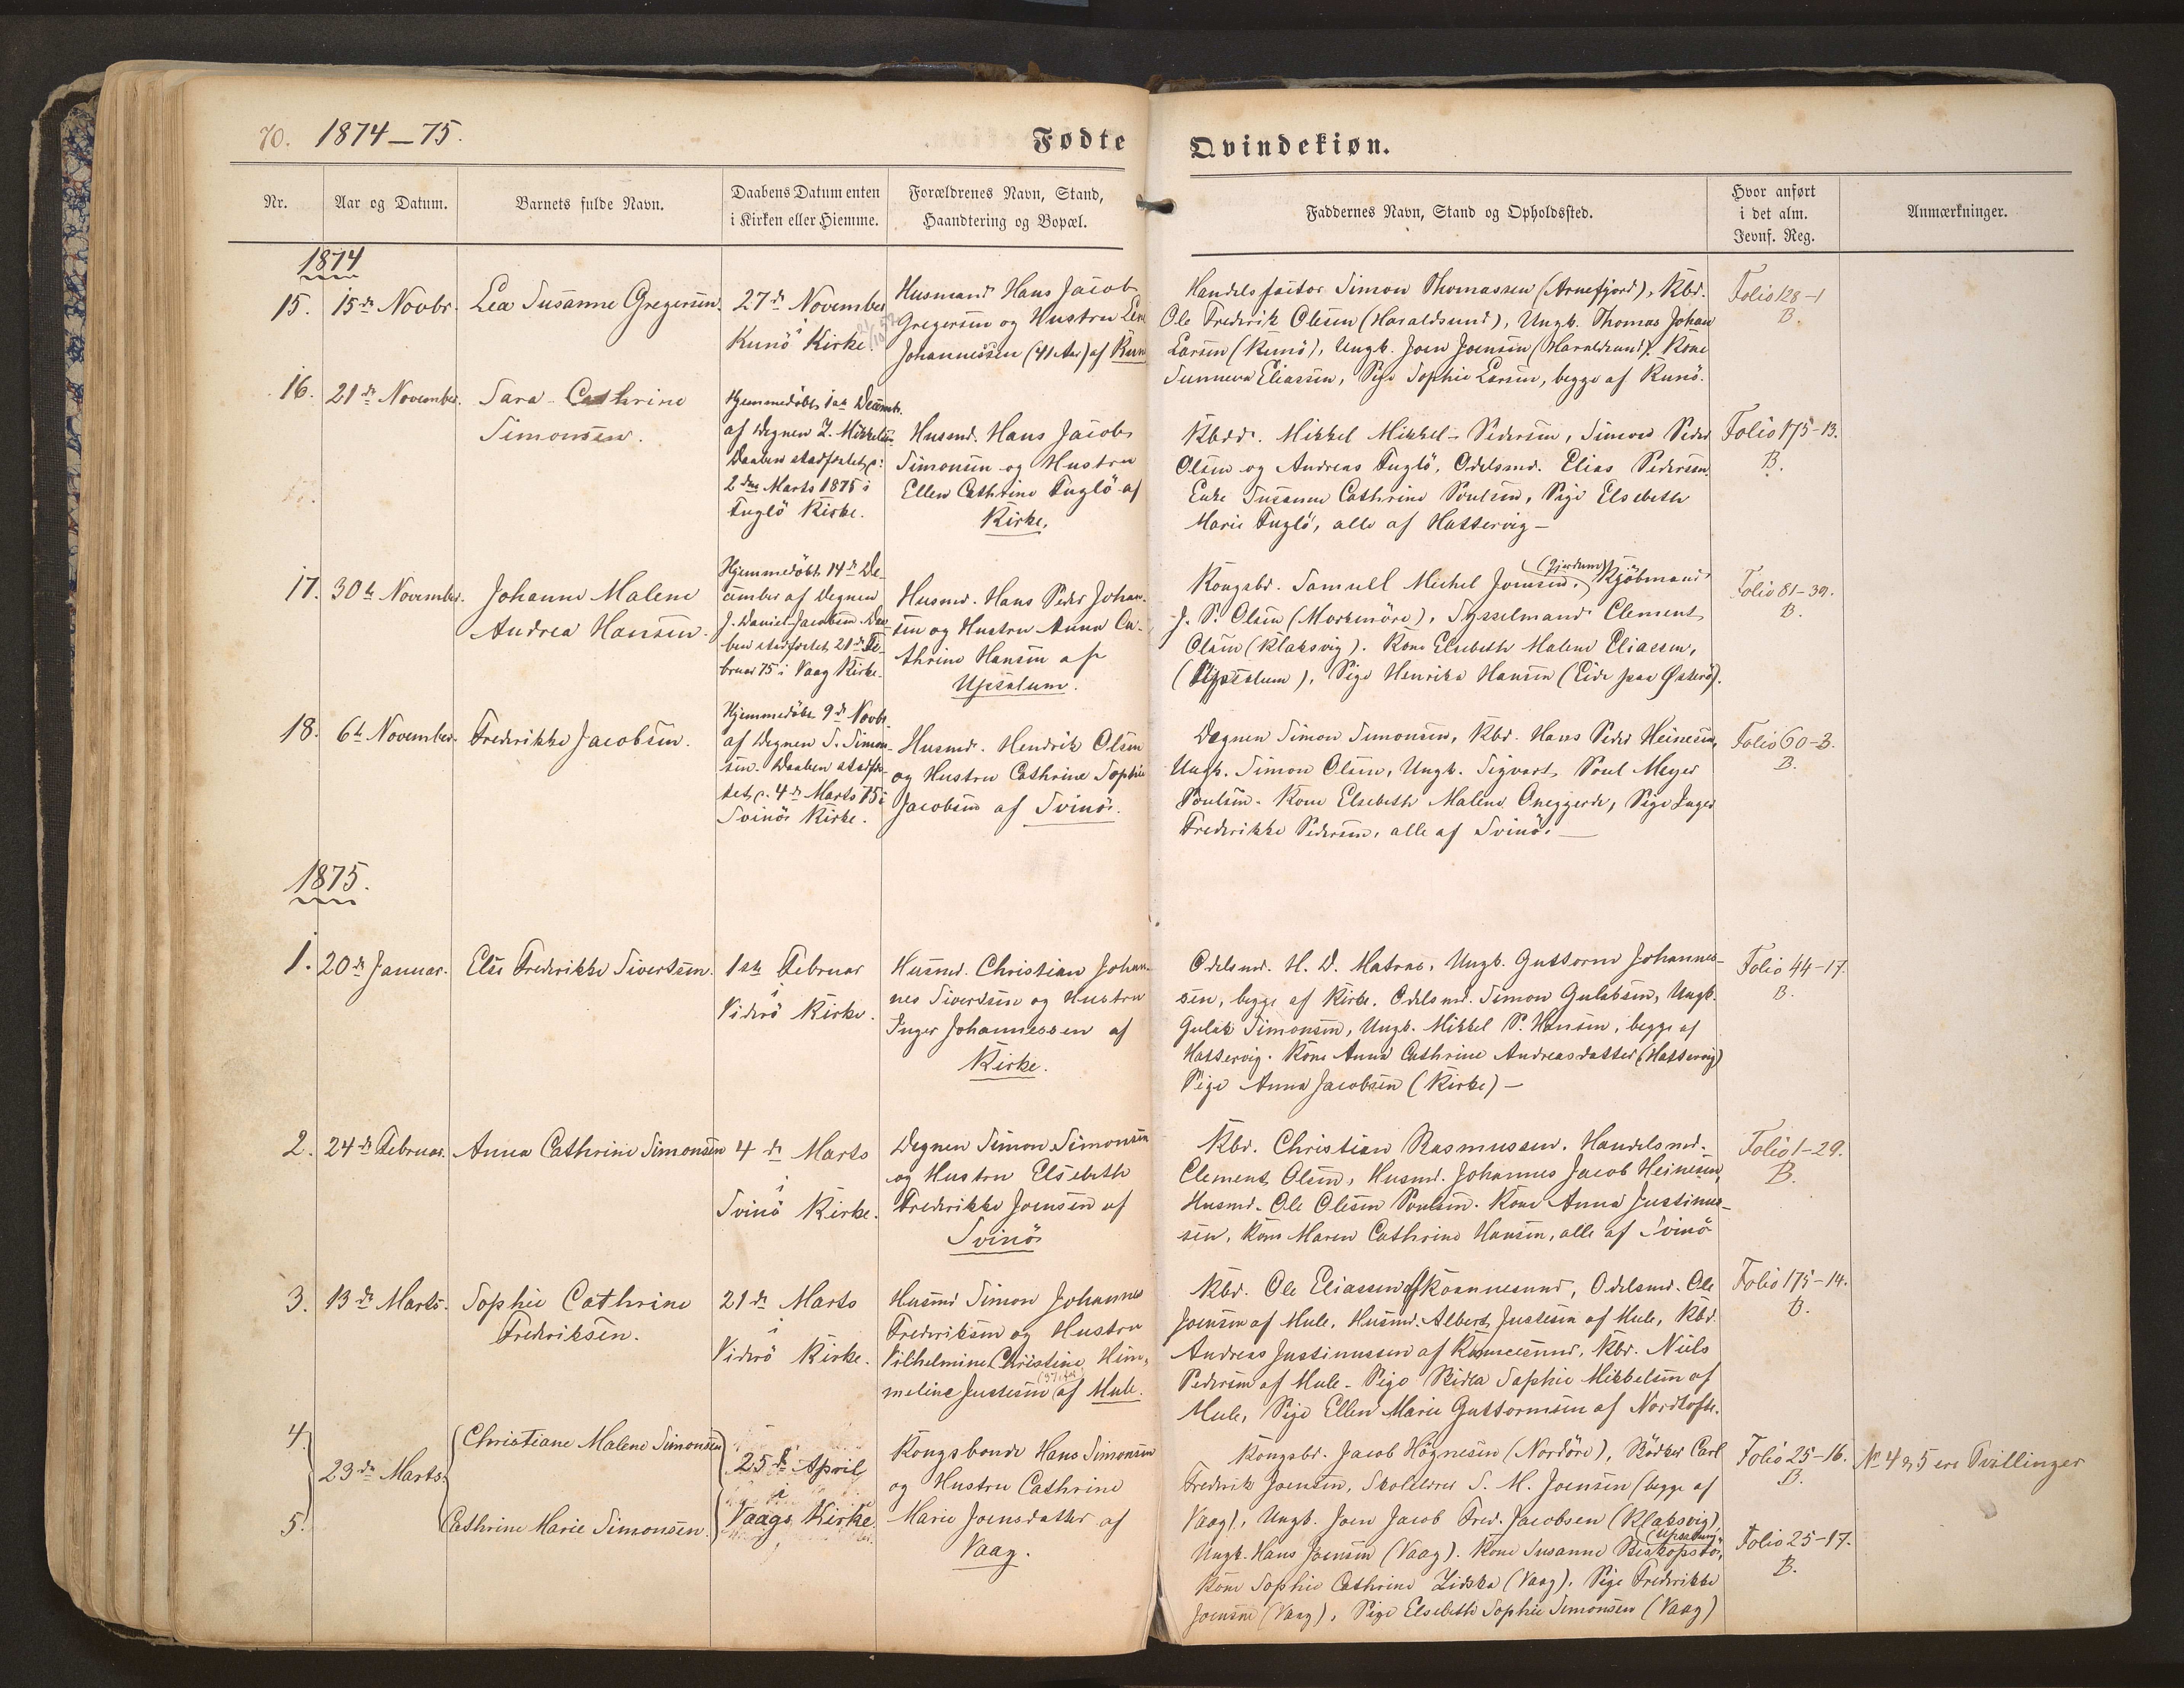 70. 1874–75.
Fødte
Qvindekiøn.
Nr.
Aar og Datum.
Barnets fulde Navn.
Daabens Datum enten
i Kirken eller Hiemme.
Forældrenes Navn, Stand,
Haandtering og Bopæl.
Faddernes Navn, Stand og Opholdssted.
Hvor anført
i det alm.
Jevnf. Reg.
Anmærkninger.
1874
15.
15de Novbr.
Lea Susanne Gregersen.
27de November
i
Kunö Kirke.
Husmand Hans Jacob
Gregersen og Hustru
Johannessen (41 Aar) af
Handelsfactor Simon Thomassen (Arnefjord), Kbd.
Ole Frederik Olesen (Haraldsund), Ungk. Thomas Johan
Larsen (Kunö), Ungk. Joen Joensen (Haraldsund). Kone
Sunneva Eliassen, Pige Sophie Larsen, begge af Kunö.
Folio 128–1
B.
16.
21de November.
Sara Cathrine
Simonsen.
Hjemmedöbt 1ste Decemb.
af Degnen Z. Mikkelsen
Daaben stadfæstet d:
2den Marts 1875 i
Fuglö Kirke.
Husmd. Hans Jacob
Simonsen og Hustru
Ellen Cathrine Fuglö af
Kirke.
Kbdr. Mikkel Mikkel-Pedersen, Simon Peder
Olsen og Andreas Fuglö, Odelsmd. Elias Pedersen.
Enke Susanne Cathrine Poulsen, Pige Elsebeth
Marie Fuglö, alle af Hattervig –
Folio 175–13.
B.
17.
30te November.
Johanne Malene
Andrea Hansen.
Hjemmedöbt 14de De-
cember af Degnen
J. Daniel Jacobsen. Daa
ben stadfæstet 21de Fe-
bruar 75 i Vaag Kirke.
Husmd. Hans Peder Johan-
sen og Hustru Anna Ca-
thrine Hansen af
Upsalum.
Kongsbd. Samuell Michel Joensen, (Gjerdum) Kjöbmand
J. P. Olsen (Морkenöre), Sysselmand Clement
Olsen (Klaksvig). Kone Elsebeth Malene Eliassen,
(Upsalum), Pige Henrika Hansen (Eide paa Østerö).
Folio 81–39.
B.
18.
6te November.
Frederikke Jacobsen.
Hjemmedöbt 9de Novbr.
af Degnen S. Simon-
sen. Daaben stadfæ-
tet d. 4de Marts 75 i
Svinö Kirke.
Husmd. Hendrik Olsen
og Hustru Cathrine Sophie
Jacobsen af Svinö.
Degnen Simon Simonsen, Kbd. Hans Peder Heinesen,
Ungk. Simon Olsen, Ungk. Sigvart Poul Meyer
Poulsen. Kone Elsebeth Malene Oneggerde, Pige Inger
Frederikke Pedersen, alle af Svinö. –
Folio 60–3.
B.
1875.
1.
20de Januar.
Else Frederikke Sivertsen.
1ste Februar
i
Viderö Kirke.
Husmd. Christian Johan-
nes Sivertsen og Hustru
Inger Johannessen af
Kirke.
Odelsmd. H. D. Matras, Ungk. Guttorm Johannes-
sen, begge af Kirke. Odelsmd. Simon Gulaksen, Ungk.
Gulak Simonsen, Ungk. Mikkel P. Hansen, begge af
Hattervig. Kone Anna Cathrine Andreasdatter (Hattervig)
Pige Anna Jacobsen (Kirke) –
Folio 44–17.
B.
2.
24de Februar.
Anna Cathrine Simonsen
4de Marts
i
Svinö Kirke.
Degnen Simon Simonsen
og Hustru Elsebeth
Frederikke Joensen af
Svinö
Kbd. Christian Rasmussen. Handelsmd.
Clement Olsen, Husmd. Johannes Jacob Heinesen,
Husmd. Ole Olesen Poulsen. Kone Anna Justinus-
sen, Kone Maren Cathrine Hansen, alle af Svinö
Folio 1–29.
B.
3.
13de Marts.
Sophie Cathrine
Frederiksen.
21de Marts
i
Viderö Kirke.
Husmd Simon Johannes
Frederiksen og Hustru
Vilhelmine Christine Him-
meline Justesen (37 Aar) af Mule.
Kbd. Ole Eliassen af Qvannesund, Odelsmd. Ole
Joensen af Mule, Husmd. Albert Justesen af Mule, Kbd.
Andreas Justinussen af Qvannesund, Kbd. Niels
Pedersen af Mule. Pige Sophie Mikkelsen af
Mule, Pige Ellen Marie Guttormsen af Nordtofte.
Folio 175–14.
B.
4.
5.
23de Marts.
Christiane Malene Simonsen
Cathrine Marie Simonsen.
25de April
i
Vaags Kirke.
Kongsbonde Hans Simonsen
og Hustru Cathrine
Marie Joensdatter af
Vaag.
Kongsbd. Jacob Högnesen (Nordöre), Bödker Carl
Fredrik Joensen, Skolelærer S. M. Joensen (begge af
Vaag), Ungk. Joen Jacob Fred. Jacobsen (Klaksvig)
Ungk. Hans Joensen (Vaag). Kone Susanne Biskopstö, (Upsalum)
Kone Sophie Cathrine Zidska (Vaag), Pige Frederikke
Joensen (Vaag), Pige Elsebeth Sophie Simonsen (Vaag)
Folio 25–16.
B.
Folio 25–17.
B.
No 4 og 5 ere Tvillinger